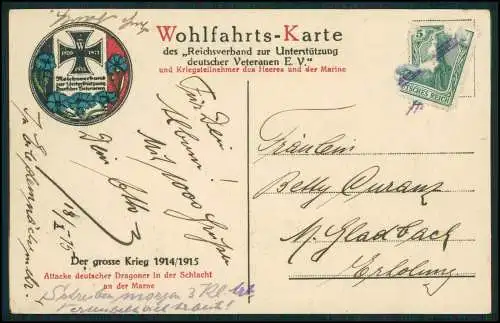 Wohlfahrts-Karte
des „Reichsverband zur Unterstützung
deutscher Veteranen E. V.“
und Kriegsteilnehmer des Heeres und der Marine
1870 W 1871
Reichsverband
zur Unterstützung
Deutscher Veteranen
5
DEUTSCHES REICH
Für Dein
Album!
Mit 1000 Grüßen
Dein Otto
18/X. 15
Fräulein
Betty Curanz
M. Gladbach
Erholung
Der grosse Krieg 1914/1915
Attacke deutscher Dragoner in der Schlacht
an der Marne
Schreiben morgen